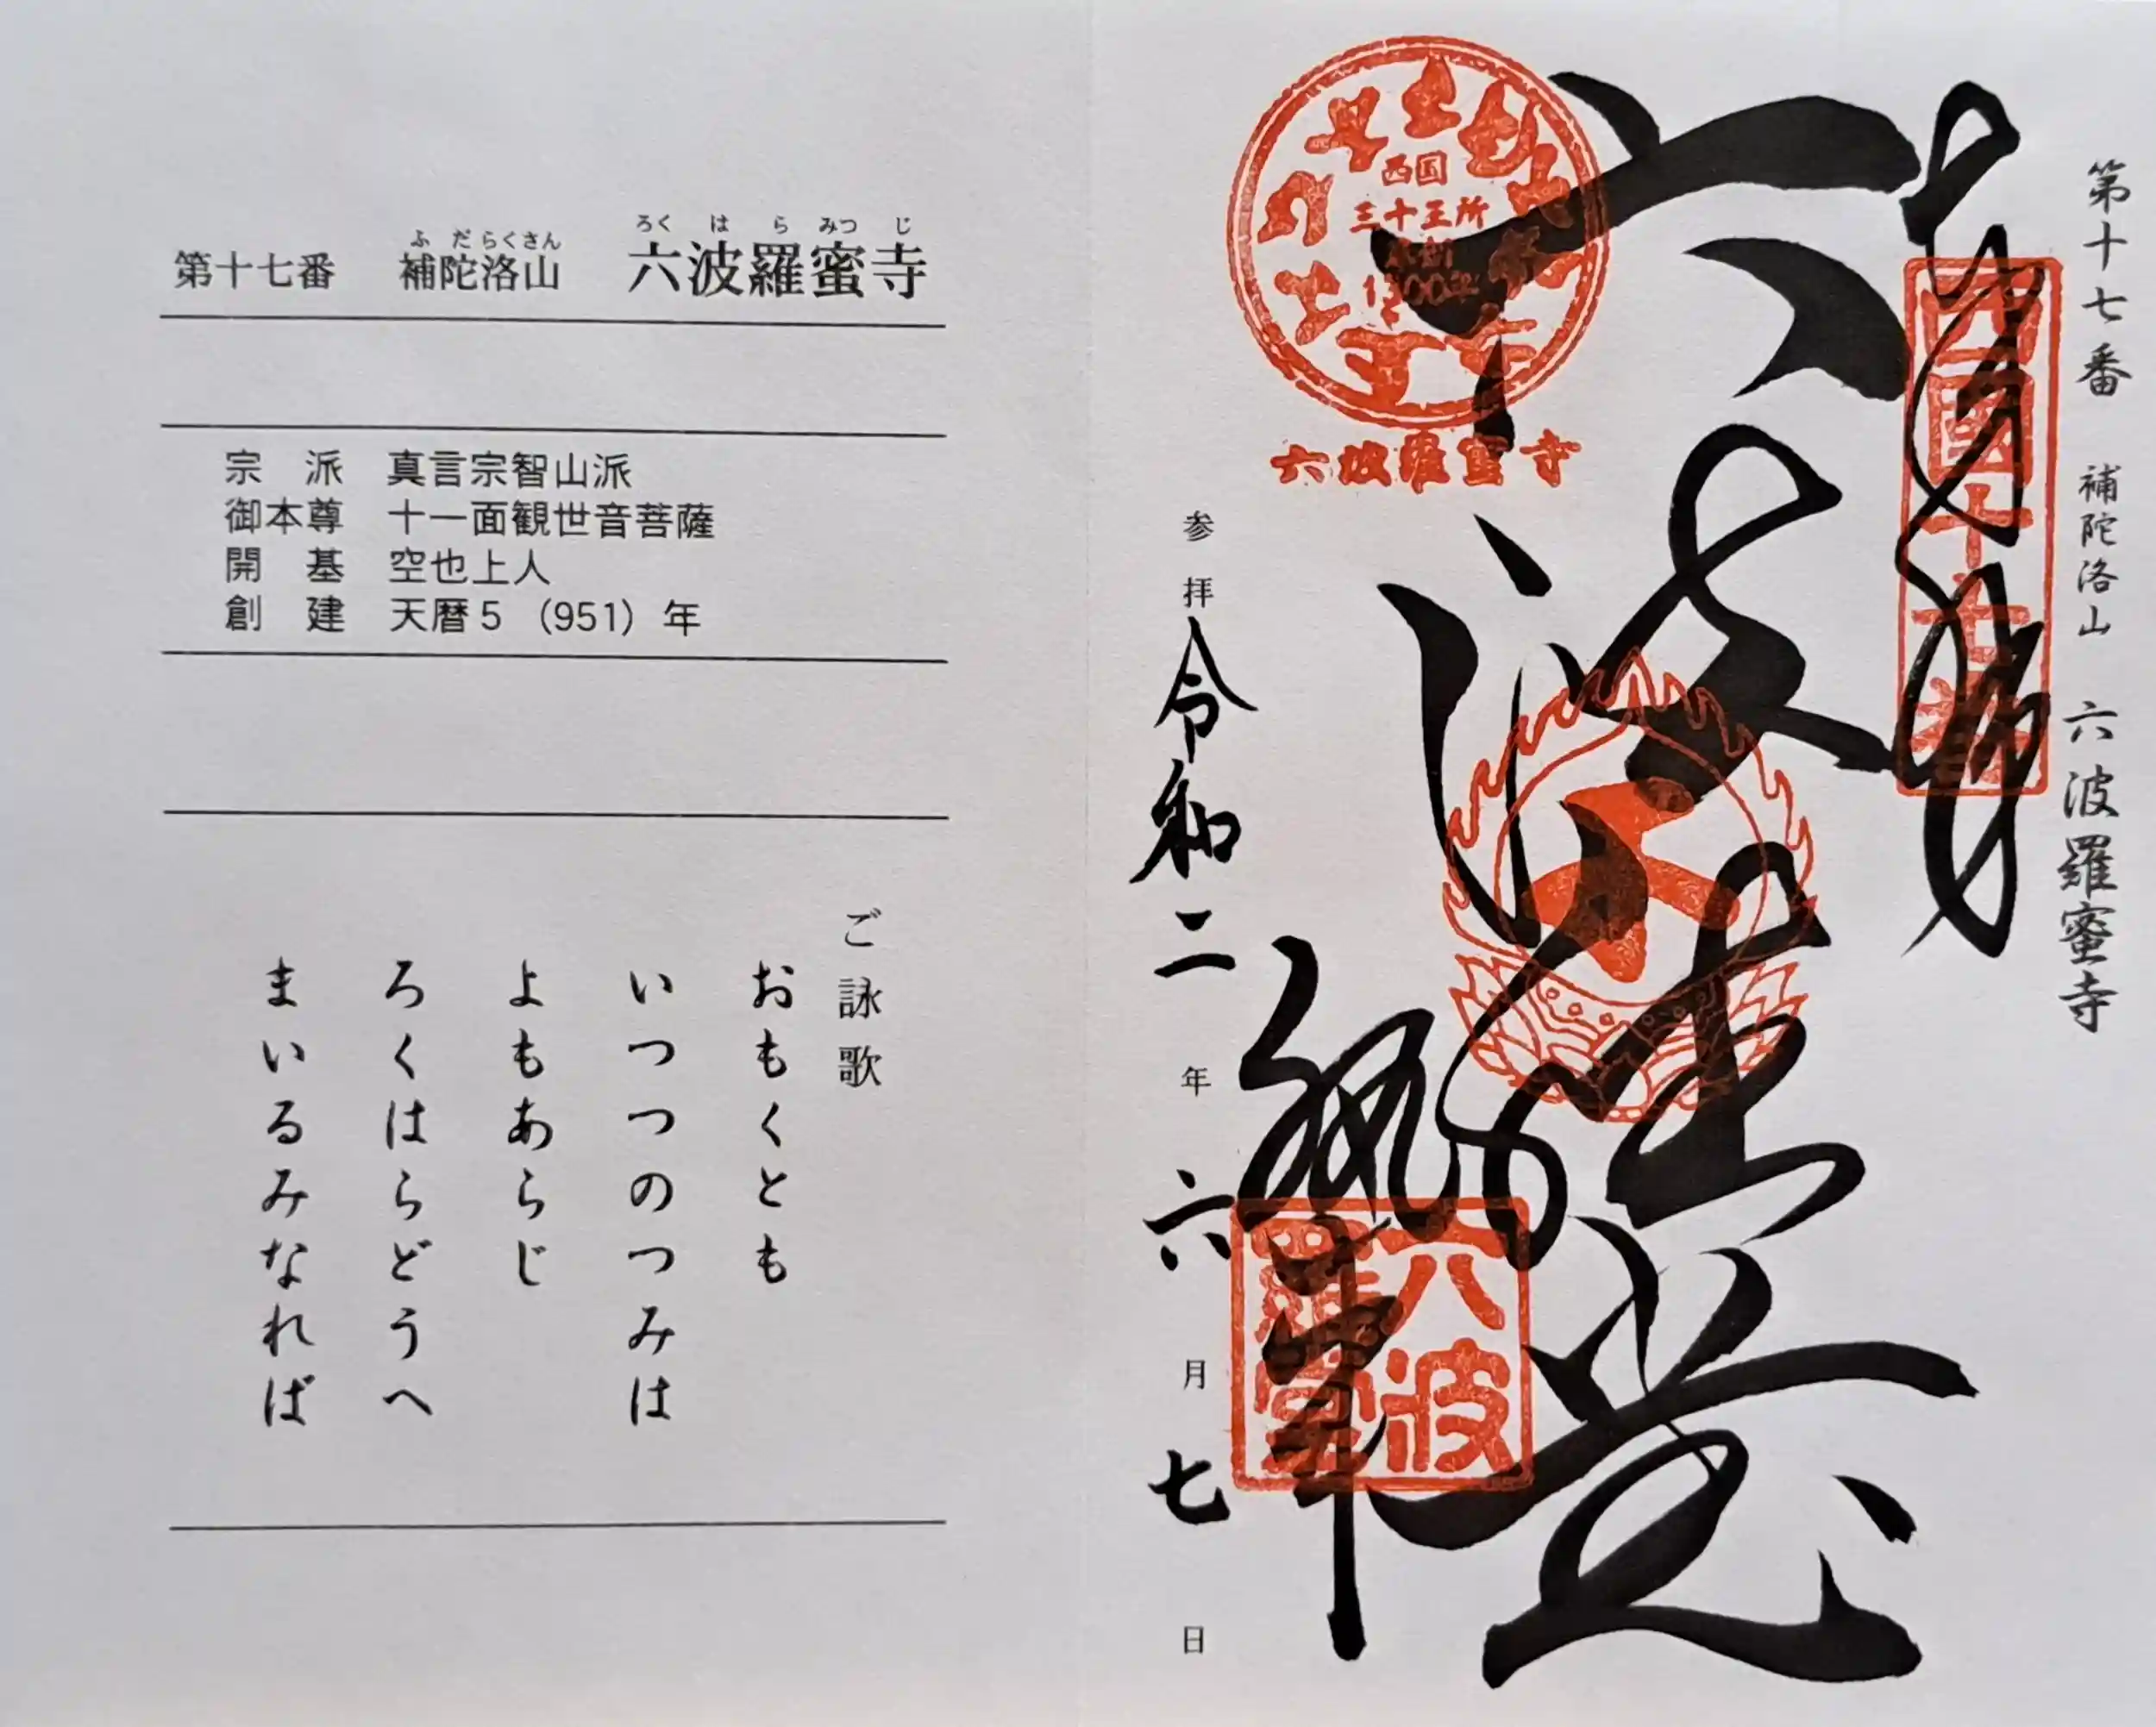 第十七番 補陀洛山 六波羅蜜寺
ふだらくさん ろくはらみつじ
宗 派 真言宗智山派
御本尊 十一面観世音菩薩
開 基 空也上人
創 建 天暦5(951)年
ご詠歌
おもくとも
いつつのつみは
よもあらじ
ろくはらどうへ
まいるみなれば
第十七番 補陀洛山 六波羅蜜寺
奉拝
西國十七番
六波羅
西国
三十三所
草創
1300年
六波羅蜜寺
六波
羅蜜
参拝 令和二年六月七日